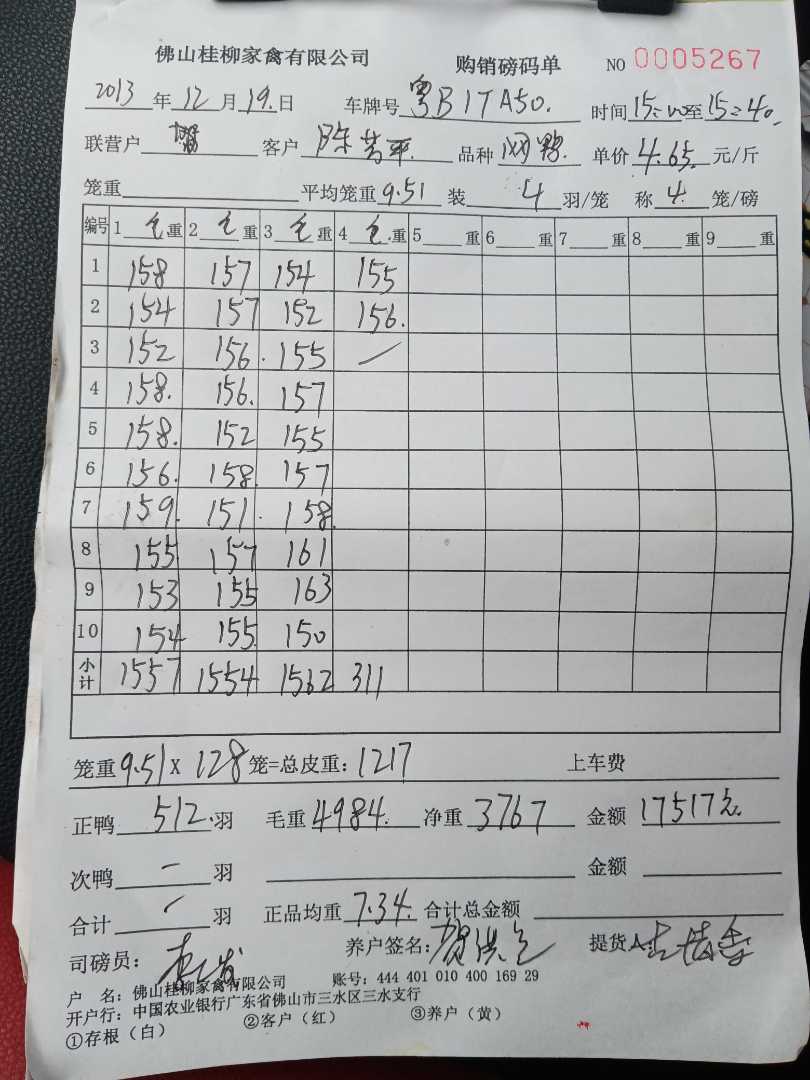 佛山桂柳家禽有限公司 购销磅码单 NO 0005267
2013 年 12 月 19 日 车牌号 粤B1TA50. 时间 15:00 至 15:40
联营户 客户 陈芳平 品种 单价 4.65 元/斤
笼重 平均笼重 9.51 装 4 羽/笼 称 4 笼/磅
编号 1 毛重 2 毛重 3 毛重 4 毛重 5 重 6 重 7 重 8 重 9 重
1 158 157 154 155
2 154 157 152 156.
3 152 156. 155 /
4 158. 156. 157
5 158. 152 155
6 156. 158. 157
7 159. 151. 158.
8 155 157 161
9 153 155 163
10 154 155 150
小计 1557 1554 1562 311
笼重 9.51 X 128 笼=总皮重: 1217 上车费
正鸭 512. 羽 毛重 4984. 净重 3767 金额 17517元.
次鸭 一 羽 金额
合计 / 羽 正品均重 7.34. 合计总金额
司磅员: 养户签名: 提货人:
户 名: 佛山桂柳家禽有限公司 账号: 444 401 010 400 169 29
开户行: 中国农业银行广东省佛山市三水区三水支行
①存根(白) ②客户(红) ③养户(黄)